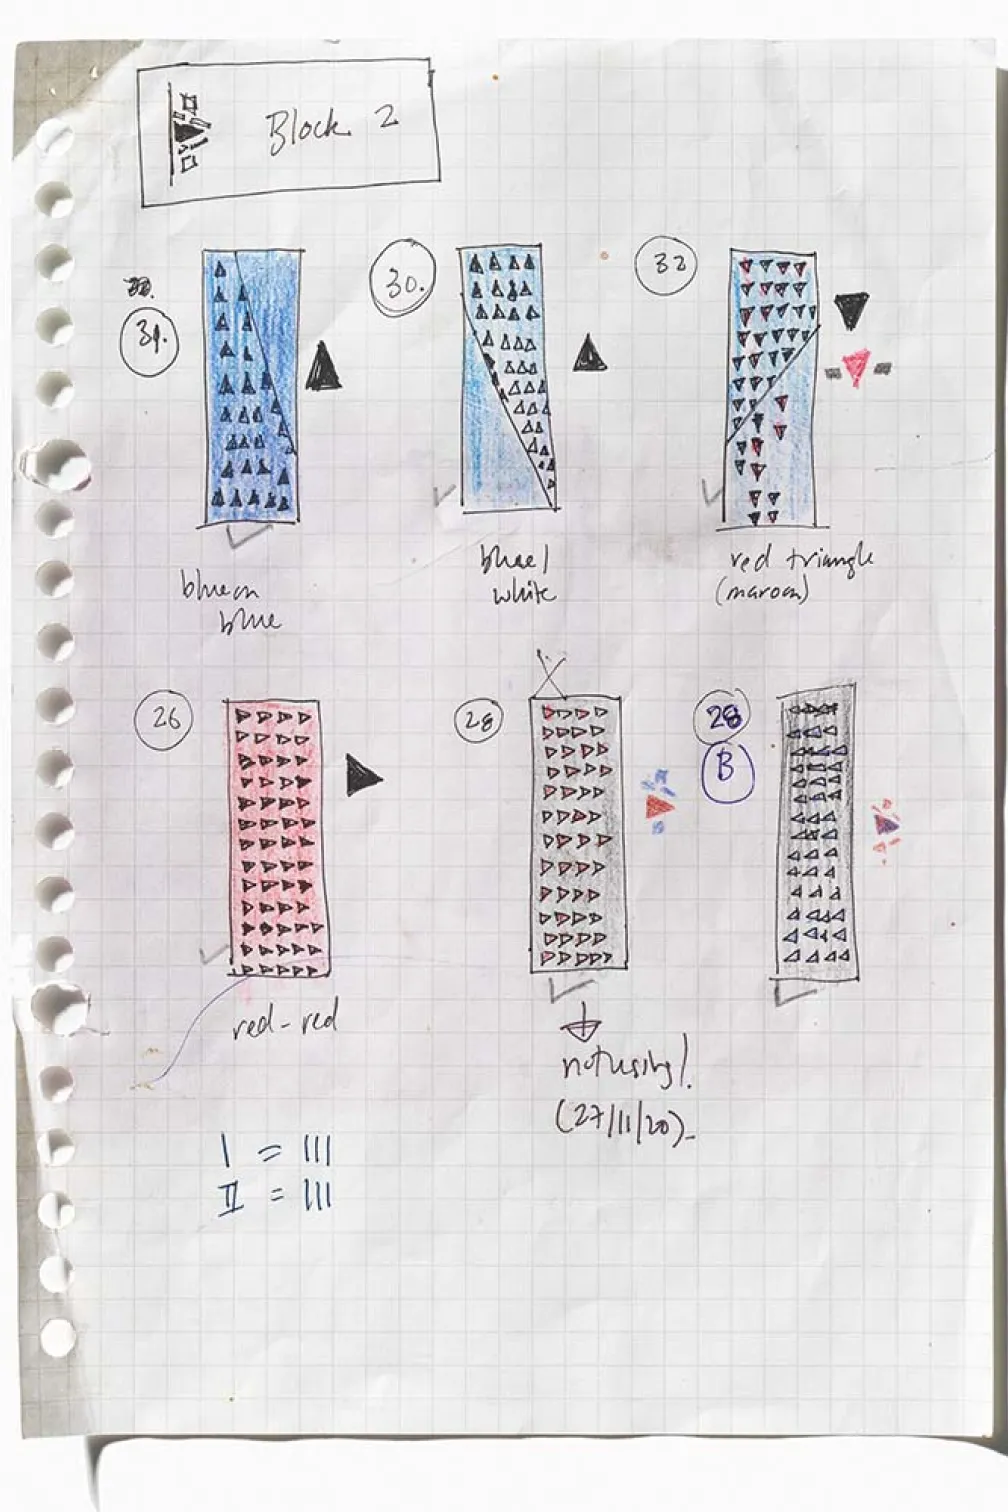 Block 2
31.
30.
32
blue on
blue
blue/
white
red triangle
(maroon)
26
28
28
B
red-red
not using!
(27/11/20)
I = III
II = III